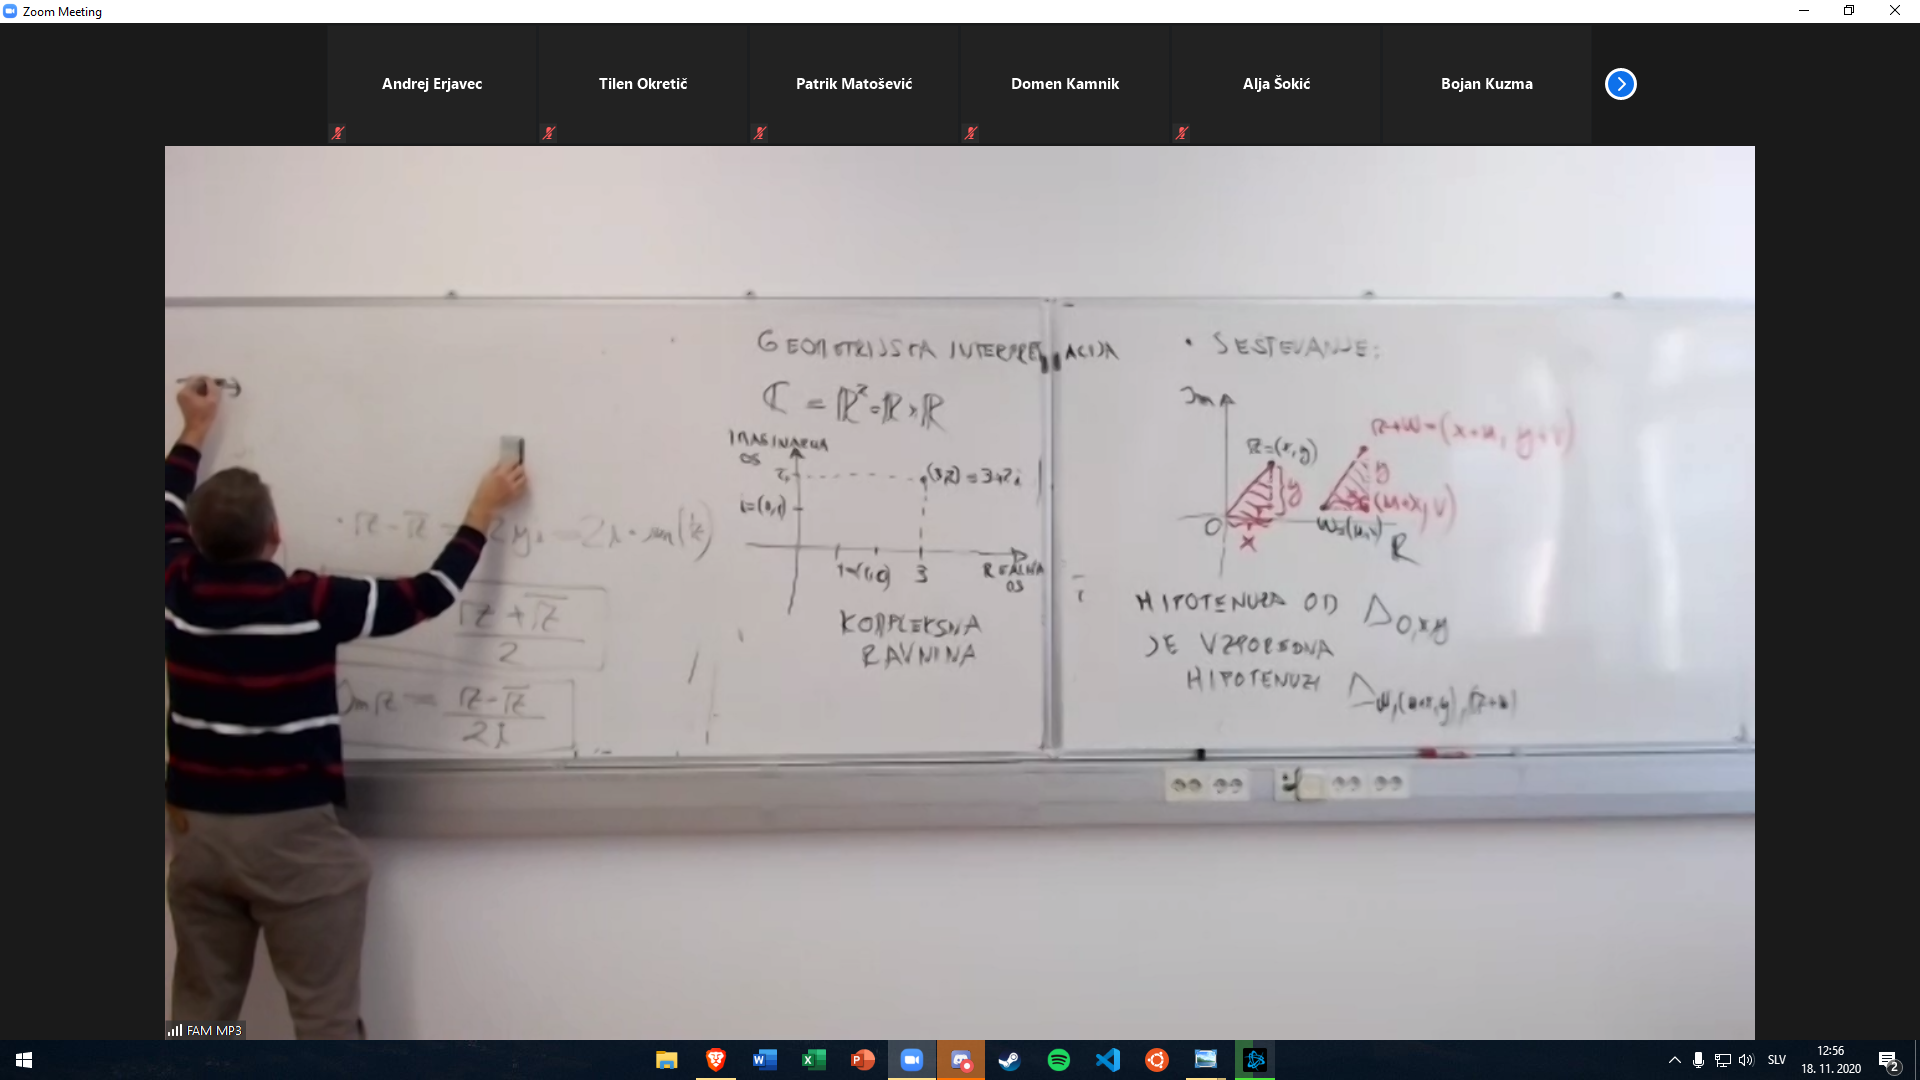 Zoom Meeting
Andrej Erjavec
Tilen Okretič
Patrik Matošević
Domen Kamnik
Alja Šokić
Bojan Kuzma
GEOMETRIJSKA INTERPRETACIJA
ℂ = ℝ² = ℝ × ℝ
IMAGINARNA
OS
i=(0,1)
(3,2) = 3+2i
1=(1,0)
3
REALNA
OS
KOMPLEKSNA
RAVNINA
• SEŠTEVANJE:
Im
z=(x,y)
y
x
0
z+w=(x+u, y+v)
y
(u+x, v)
w=(u,v)
R
HIPOTENUZA OD Δ0,x,y
JE VZPOREDNA
HIPOTENUZI
• z - z̄ = 2yi = 2i
z + z̄
2
Im z = z - z̄
2i
FAM MP3
SLV
12:56
18. 11. 2020
2